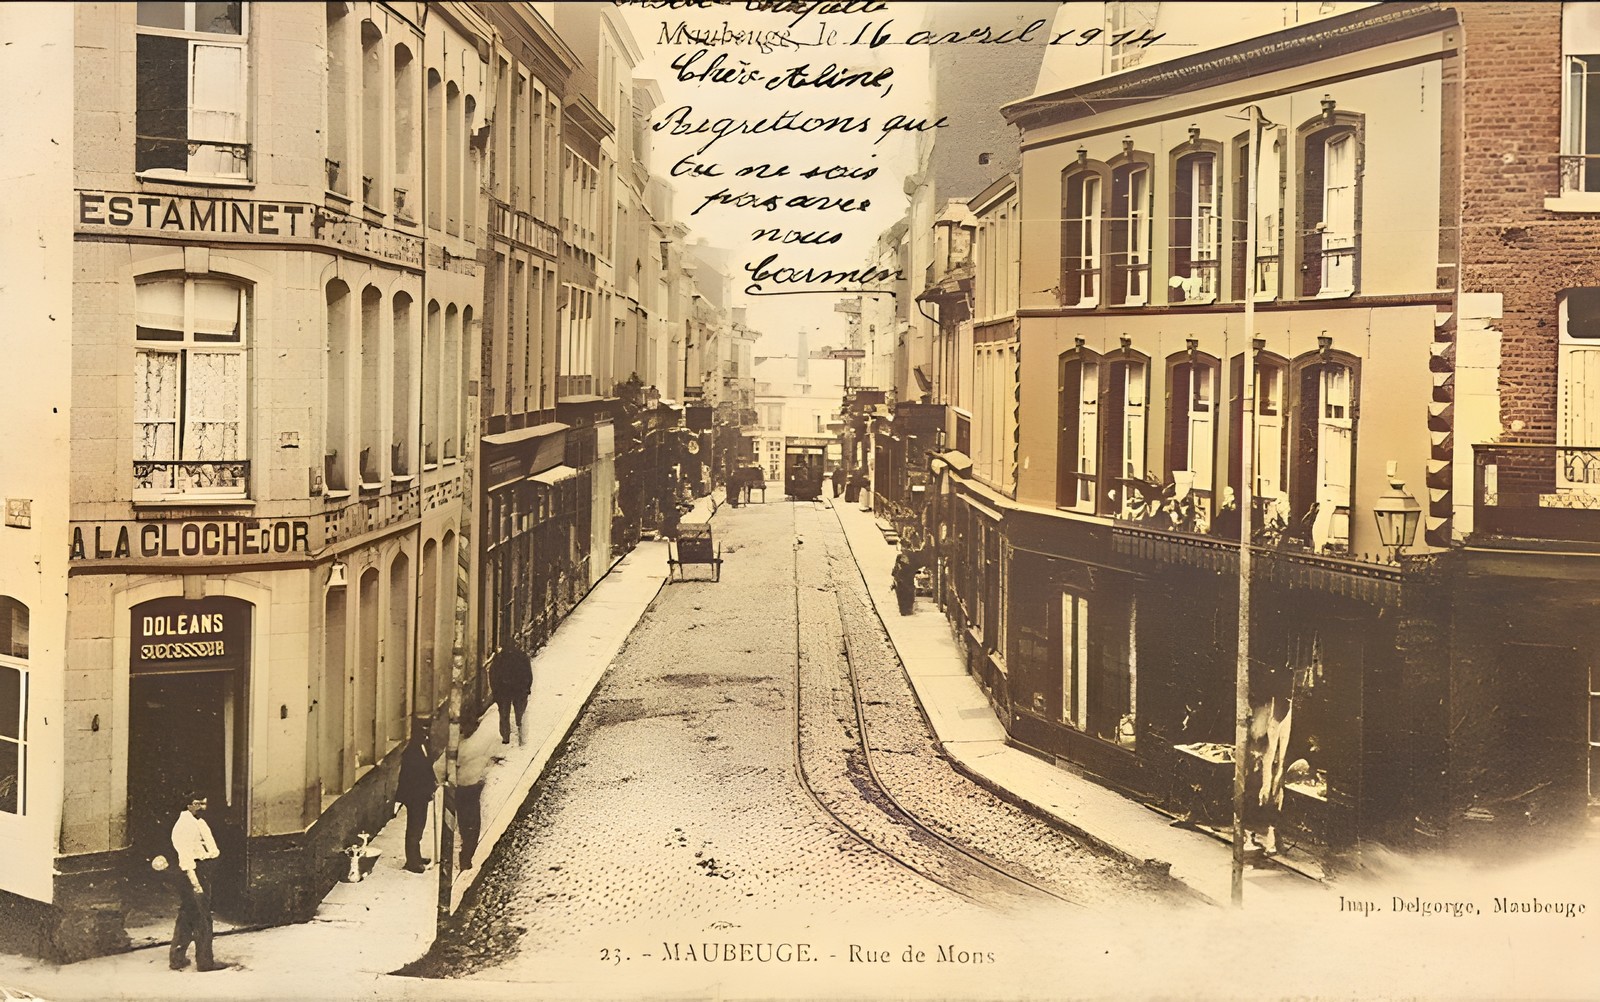 Maubeuge, le 16 avril 1914
Chère Aline,
Regrettons que
tu ne sois
pas avec
nous
Carmen
ESTAMINET
A LA CLOCHE D'OR
DOLEANS
23. - MAUBEUGE. - Rue de Mons
Imp. Delgorge, Maubeuge